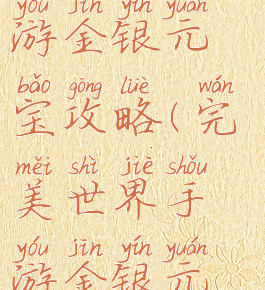 yóu jīn yín yuán
游金银元
bǎo gōng lüè wán
宝攻略(完
měi shì jiè shǒu
美世界手
yóu jīn yín yuán
游金银元